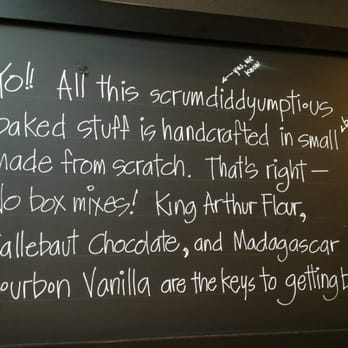 Yo!! All this scrumdiddyumptious
yes, we know
baked stuff is handcrafted in small
made from scratch. That's right—
No box mixes! King Arthur Flour,
Callebaut Chocolate, and Madagascar
Bourbon Vanilla are the keys to getting